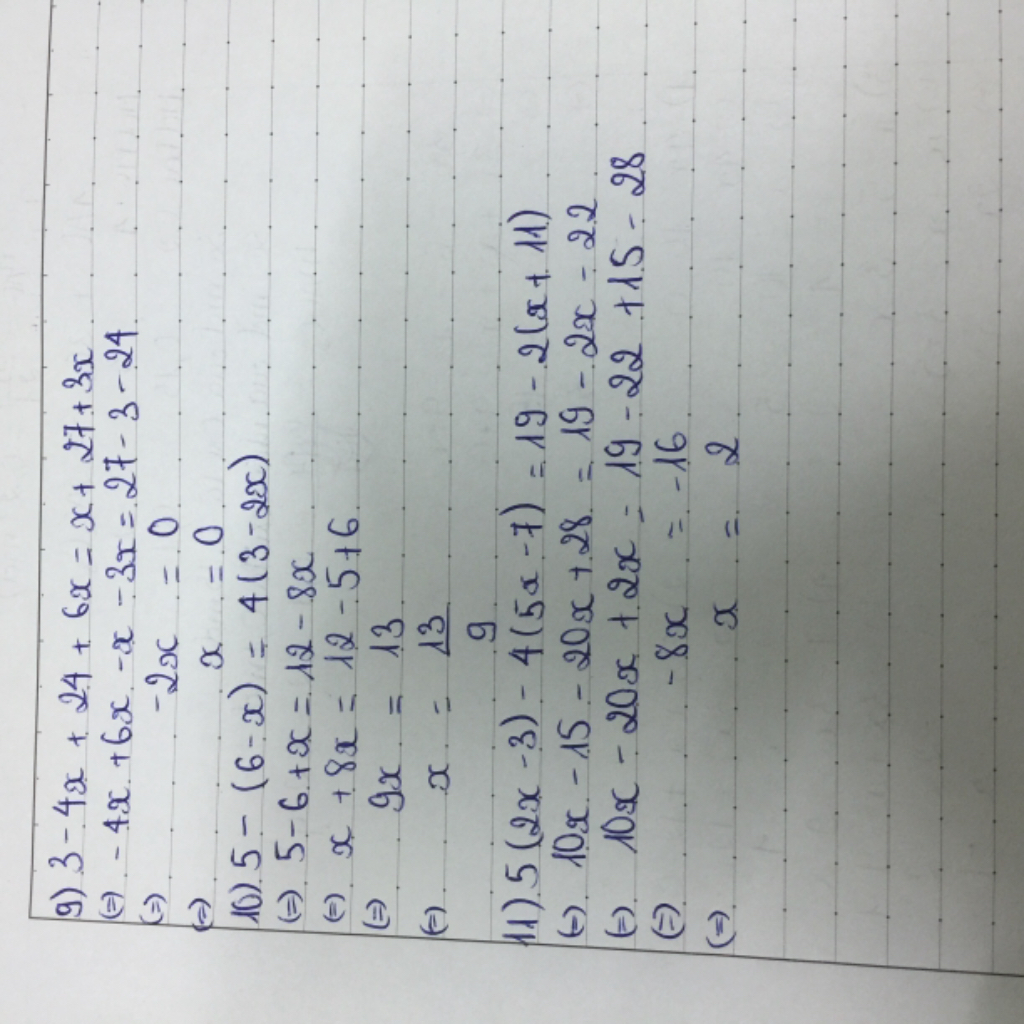 9) 3 - 4x + 24 + 6x = x + 27 + 3x
(=) - 4x + 6x - x - 3x = 27 - 3 - 24
(=) -2x = 0
(=) x = 0
10) 5 - (6 - x) = 4(3 - 2x)
(=) 5 - 6 + x = 12 - 8x
(=) x + 8x = 12 - 5 + 6
(=) 9x = 13
(=) x = 13/9
11) 5(2x - 3) - 4(5x - 7) = 19 - 2(x + 11)
(=) 10x - 15 - 20x + 28 = 19 - 2x - 22
(=) 10x - 20x + 2x = 19 - 22 + 15 - 28
(=) - 8x = -16
(=) x = 2